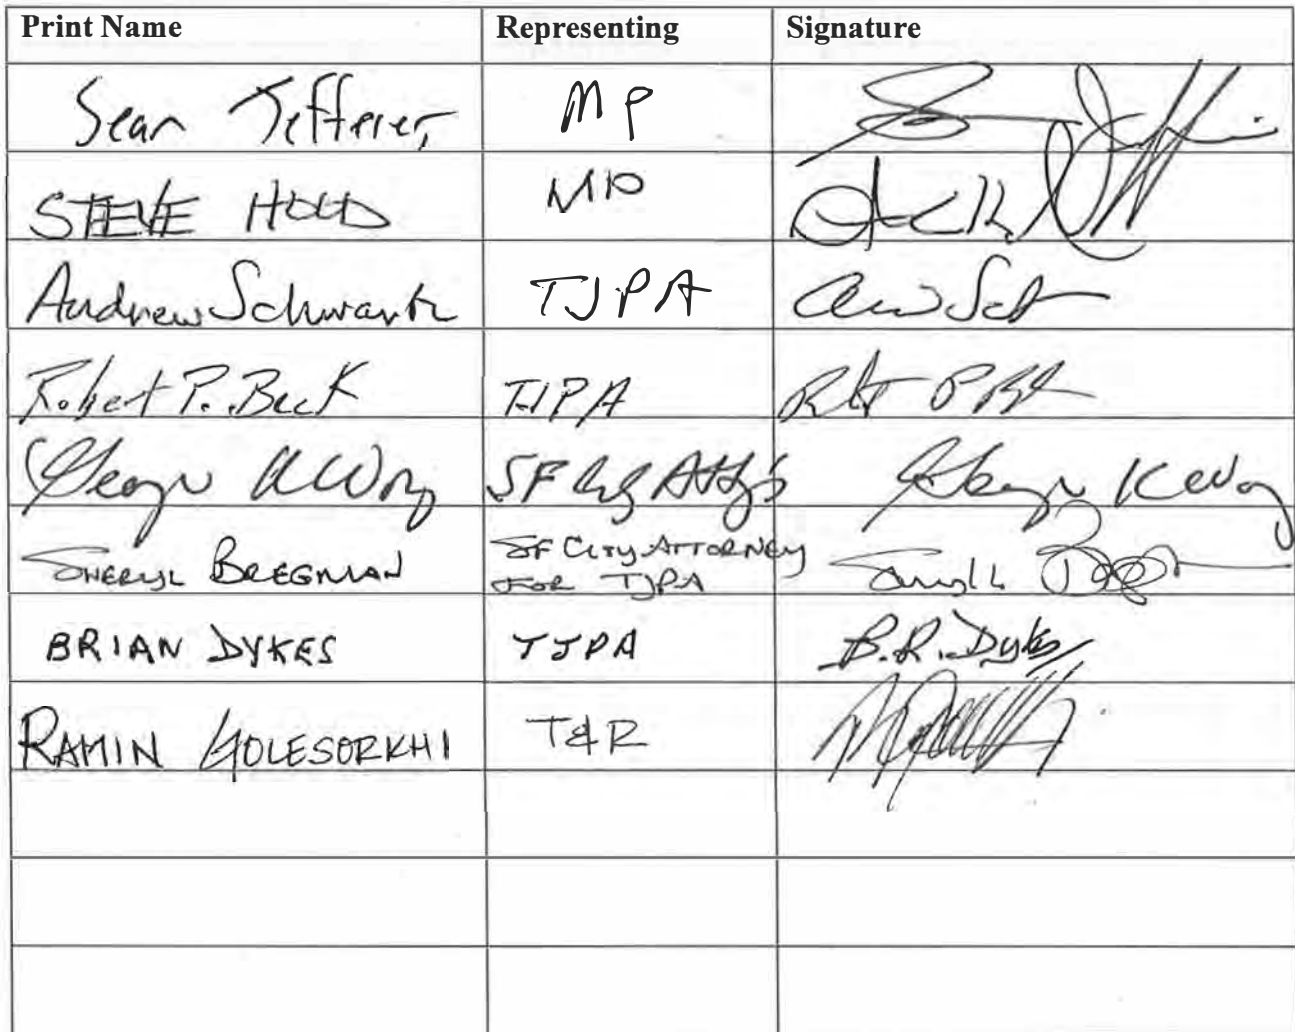 Print Name Representing Signature
Sean Jefferies MP
STEVE HOOD MP
Andrew Schwartz TJPA
Robert P. Beck TJPA
George K Wong SF City Att'y's
SHERYL BREGMAN SF CITY ATTORNEY
FOR TJPA
BRIAN DYKES TJPA B.R. Dykes
RAMIN GOLESORKHI T&R